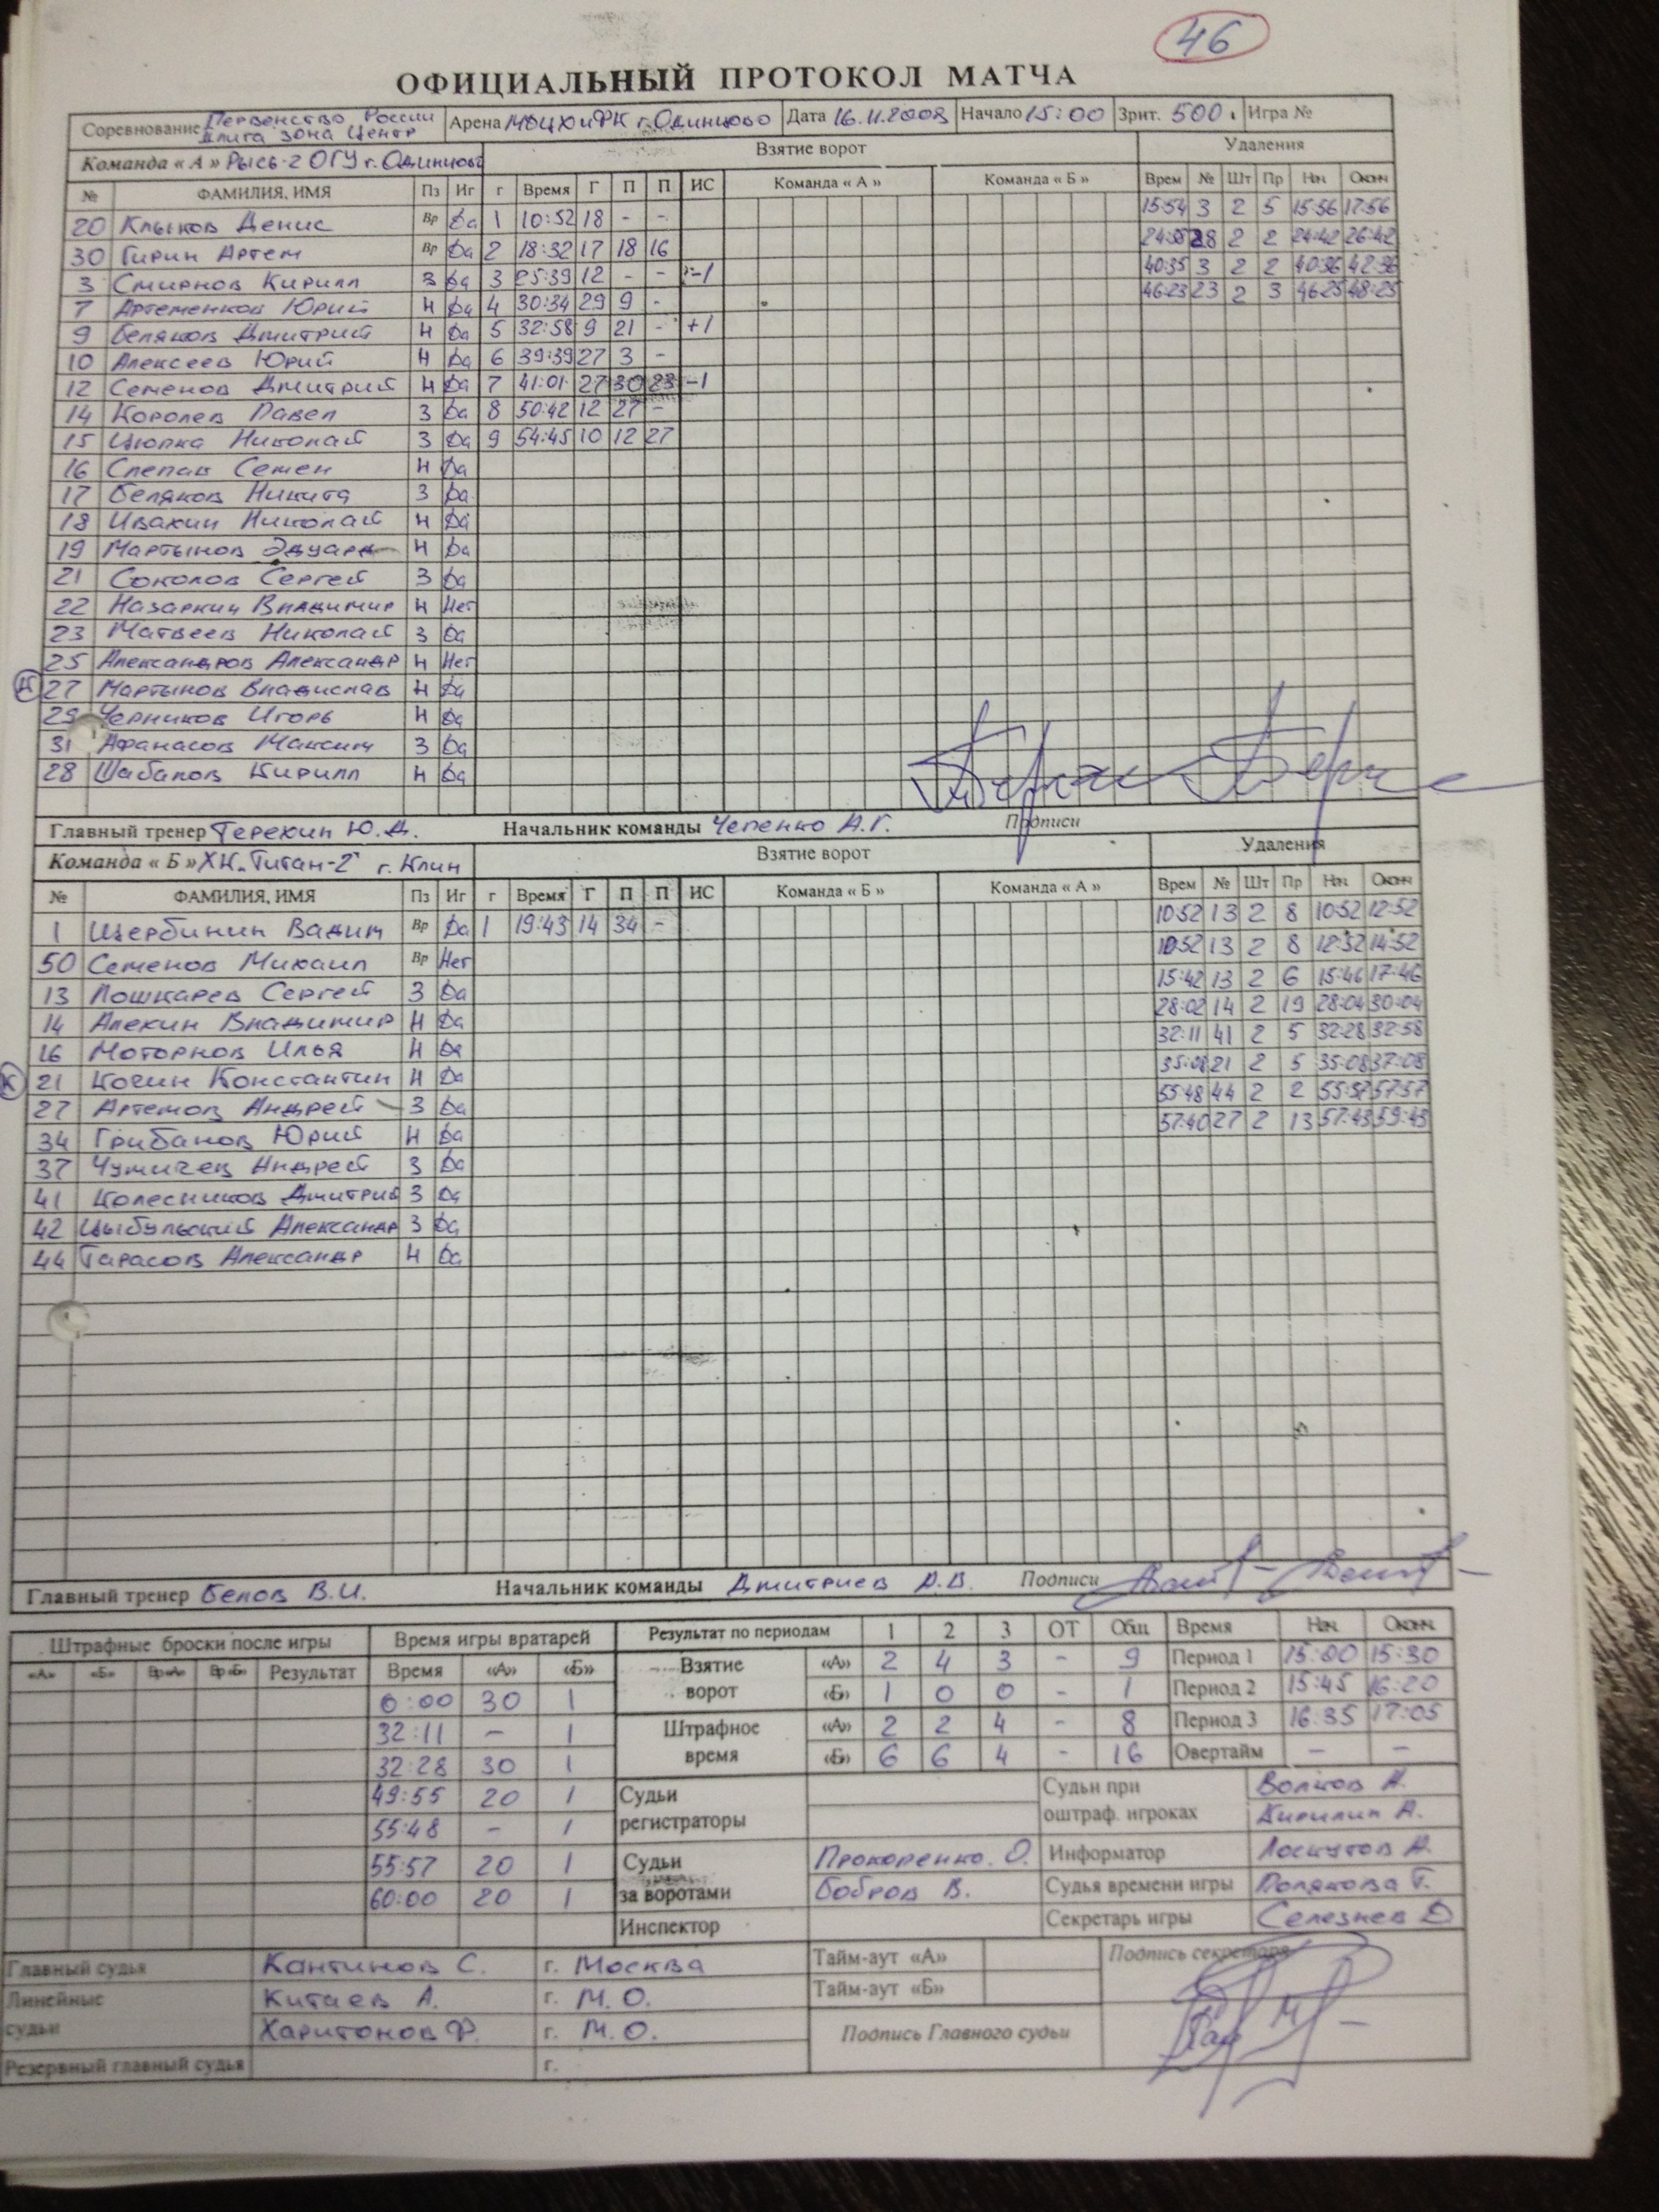 46
ОФИЦИАЛЬНЫЙ ПРОТОКОЛ МАТЧА
Соревнование Первенство России Арена МОЦХиФК г. Одинцово Дата 16.11.2008 Начало 15:00 Зрит. 500 Игра №
лига зона Центр
Команда « А » Рысь-2 ОГУ г. Одинцово Взятие ворот Удаления
№ ФАМИЛИЯ, ИМЯ Пз Иг г Время Г П П ИС Команда « А » Команда « Б » Врем № Шт Пр Нач Оконч
20 Клыков Денис Вр Да 1 10:52 18 - - 15:54 3 2 5 15:56 17:56
30 Гирин Артем Вр Да 2 18:32 17 18 16 28 2 2 24:42 26:42
3 Смирнов Кирилл З Да 3 25:39 12 - - -1 40:35 3 2 2 40:36 42:36
7 Артеменков Юрий Н Да 4 30:34 29 9 - 46:23 23 2 3 46:25 48:25
9 Беляков Дмитрий Н Да 5 32:58 9 21 - +1
10 Алексеев Юрий Н Да 6 39:39 27 3 -
12 Семенов Дмитрий Н Да 7 41:01 27 30 23 -1
14 Королев Павел З Да 8 50:42 12 27 -
15 Цюпка Николай З Да 9 54:45 10 12 27
16 Слепав Семен Н Да
17 Беляков Никита З Да
18 Ивахин Николай Н Да
19 Мартынов Эдуард Н Да
21 Соколов Сергей З Да
22 Назаркин Владимир Н Нет
23 Матвеев Николай З Да
25 Александров Александр Н Нет
К 27 Мартынов Владислав Н Да
29 Черников Игорь Н Да
31 Афанасов Максим З Да
28 Шабалов Кирилл Н Да
Главный тренер Терехин Ю.Д. Начальник команды Чепенко А.Г. Подписи
Команда « Б » ХК „Титан-2" г. Клин Взятие ворот Удаления
№ ФАМИЛИЯ, ИМЯ Пз Иг г Время Г П П ИС Команда « Б » Команда « А » Врем № Шт Пр Нач Оконч
1 Щербинин Вадим Вр Да 1 19:43 14 34 - 10:52 13 2 8 10:52 12:52
50 Семенов Михаил Вр Нет 10:52 13 2 8 12:52 14:52
13 Лошкарев Сергей З Да 15:42 13 2 6 15:46 17:46
14 Алехин Владимир Н Да 28:02 14 2 19 28:04 30:04
16 Моторнов Илья Н Да 32:11 41 2 5 32:28 32:58
К 21 Кочин Константин Н Да 35:08 21 2 5 35:08 37:08
27 Артемов Андрей З Да 55:48 44 2 2 55:57 57:57
34 Грибанов Юрий Н Да 57:40 27 2 13 57:43 59:43
37 Чумичев Андрей З Да
41 Колесников Дмитрий З Да
42 Цыбульский Александр З Да
44 Тарасов Александр Н Да
Главный тренер Белов В.И. Начальник команды Дмитриев А.В. Подписи
Штрафные броски после игры Время игры вратарей Результат по периодам 1 2 3 ОТ Общ Время Нач. Оконч.
«А» «Б» Вр«А» Вр«Б» Результат Время «А» «Б» Взятие ворот «А» 2 4 3 - 9 Период 1 15:00 15:30
0:00 30 1 «Б» 1 0 0 - 1 Период 2 15:45 16:20
32:11 - 1 Штрафное время «А» 2 2 4 - 8 Период 3 16:35 17:05
32:28 30 1 «Б» 6 6 4 - 16 Овертайм - -
49:55 20 1 Судьи регистраторы Судьи при оштраф. игроках Волков А.
55:48 - 1 Кирилин А.
55:57 20 1 Судьи за воротами Прокоренко. О. Информатор Лоскутов А.
60:00 20 1 Бобров В. Судья времени игры Полякова Т.
Инспектор Секретарь игры Селезнев Д
Главный судья Кантинов С. г. Москва Тайм-аут «А» Подпись секретаря
Линейные судьи Китаев А. г. М.О. Тайм-аут «Б»
Харитонов Ф. г. М.О. Подпись Главного судьи
Резервный главный судья г.